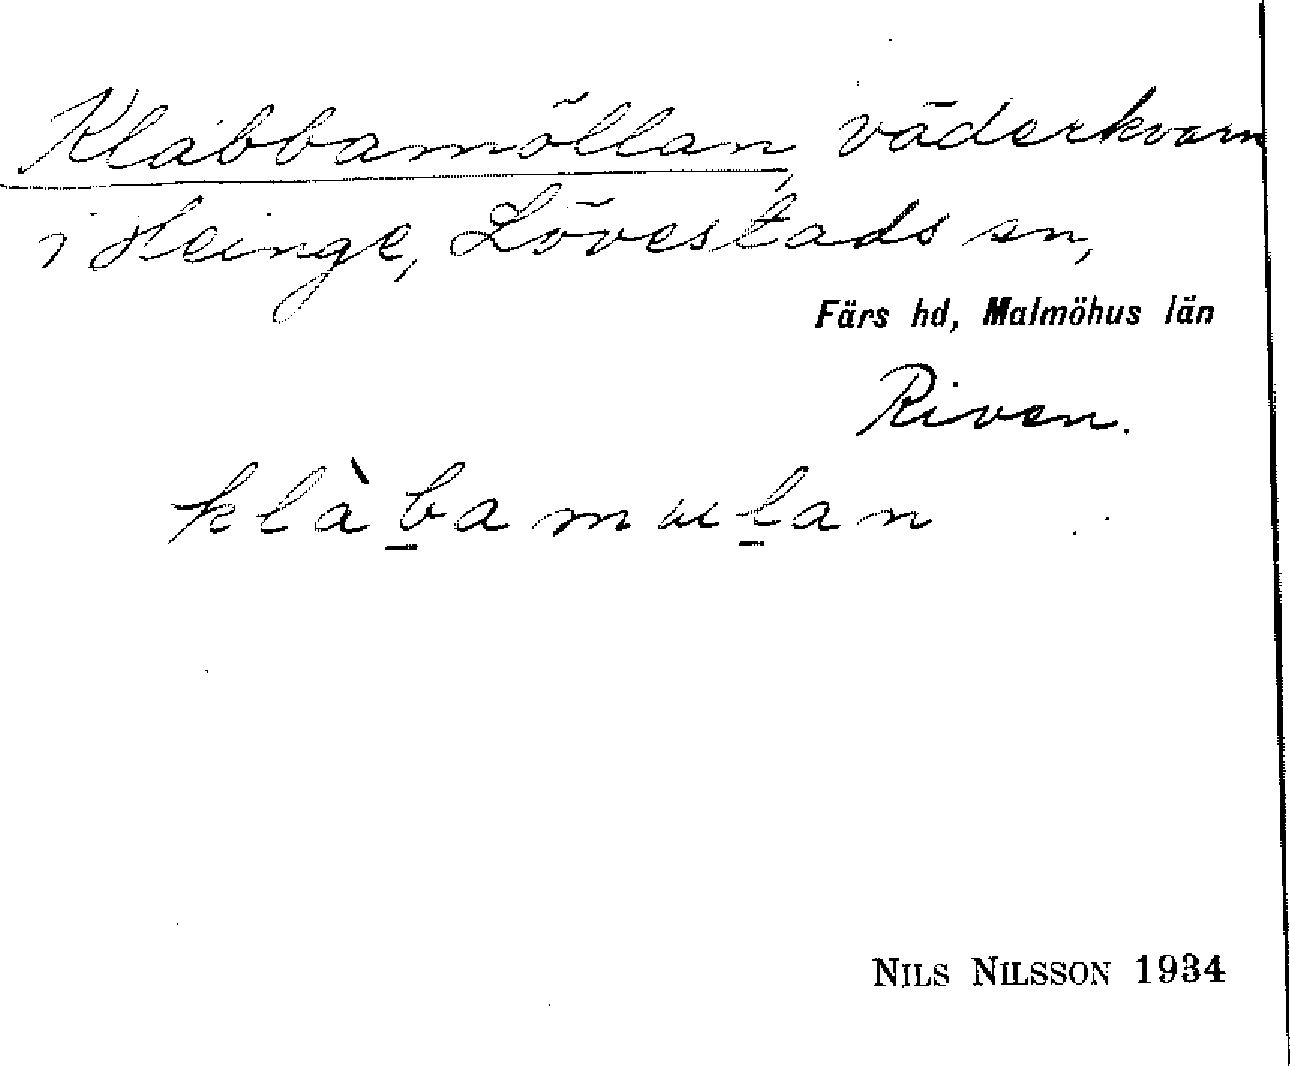 Klabbamöllan, väderkvarn
i Heinge, Lövestads sn,
Färs hd, Malmöhus län
Riven.
klàbamulan
NILS NILSSON 1934